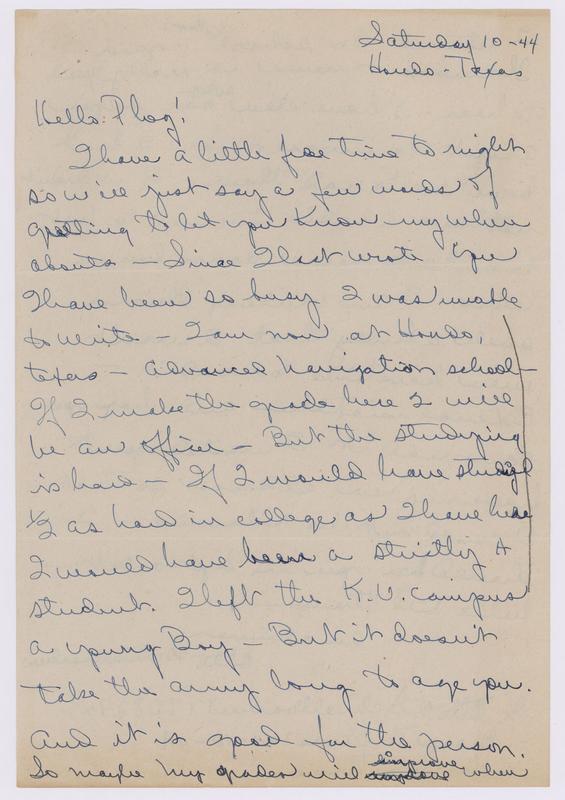 Saturday 10-44
Hondo - Texas
Hello Plog!
I have a little free time to night
so w'ell just say a few words of
greeting to let you know my where
abouts — Since I last wrote you
I have been so busy I was unable
to write — I am now at Hondo,
texas — advanced navigation school —
If I make the grade here I will
be an officer — But the studying
is hard — If I would have studied
1/2 as hard in college as I have here
I would have been a strictly A
student. I left the K.U. campus
a young Boy — But it doesn't
take the army long to age you.
And it is good for the person.
So maybe my grades will improve when